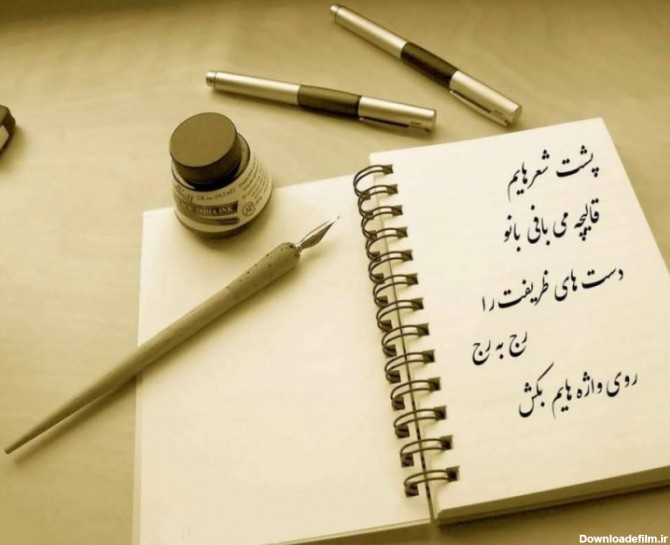 پشت شعرهایم
قالیچه می بافی بانو
دست های ظریفت را
رج به رج
روی واژه هایم بکش
INDIA INK
Downloadefilm.ir